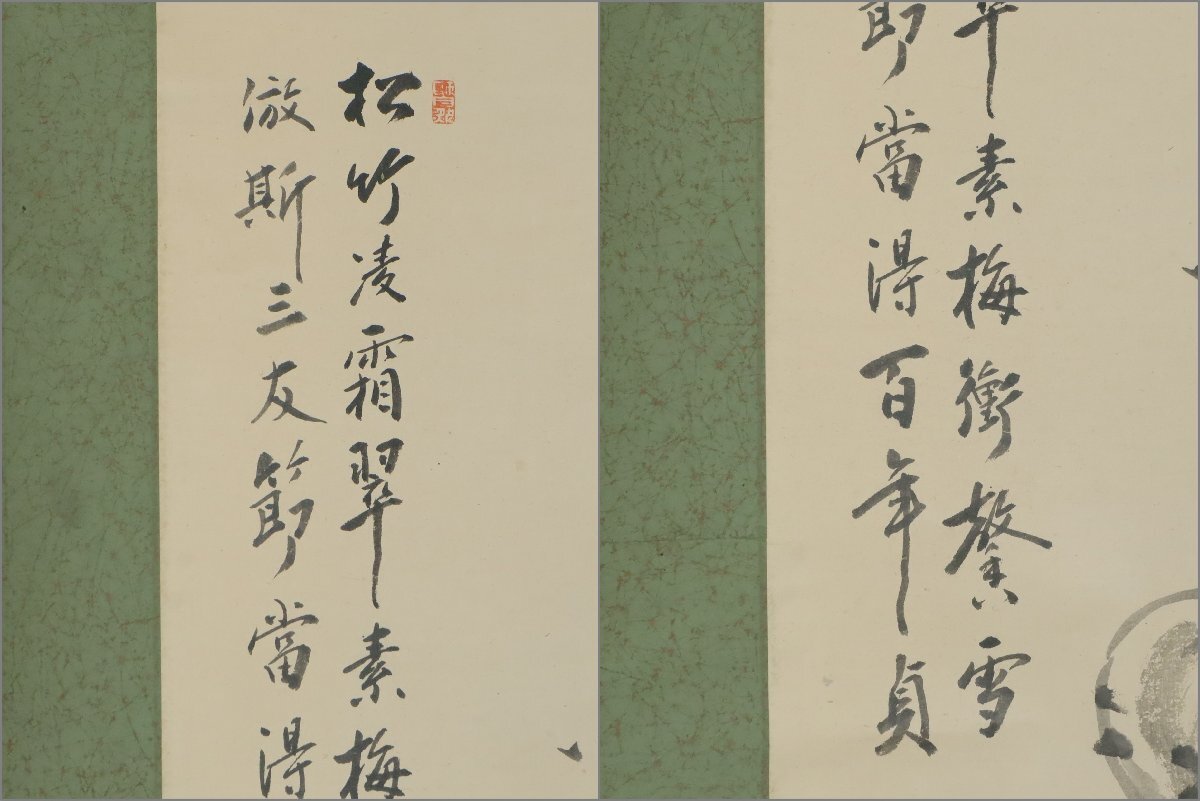 松竹凌霜翠素梅
倣斯三友節當得
翠素梅衝雪
節當得百年貞